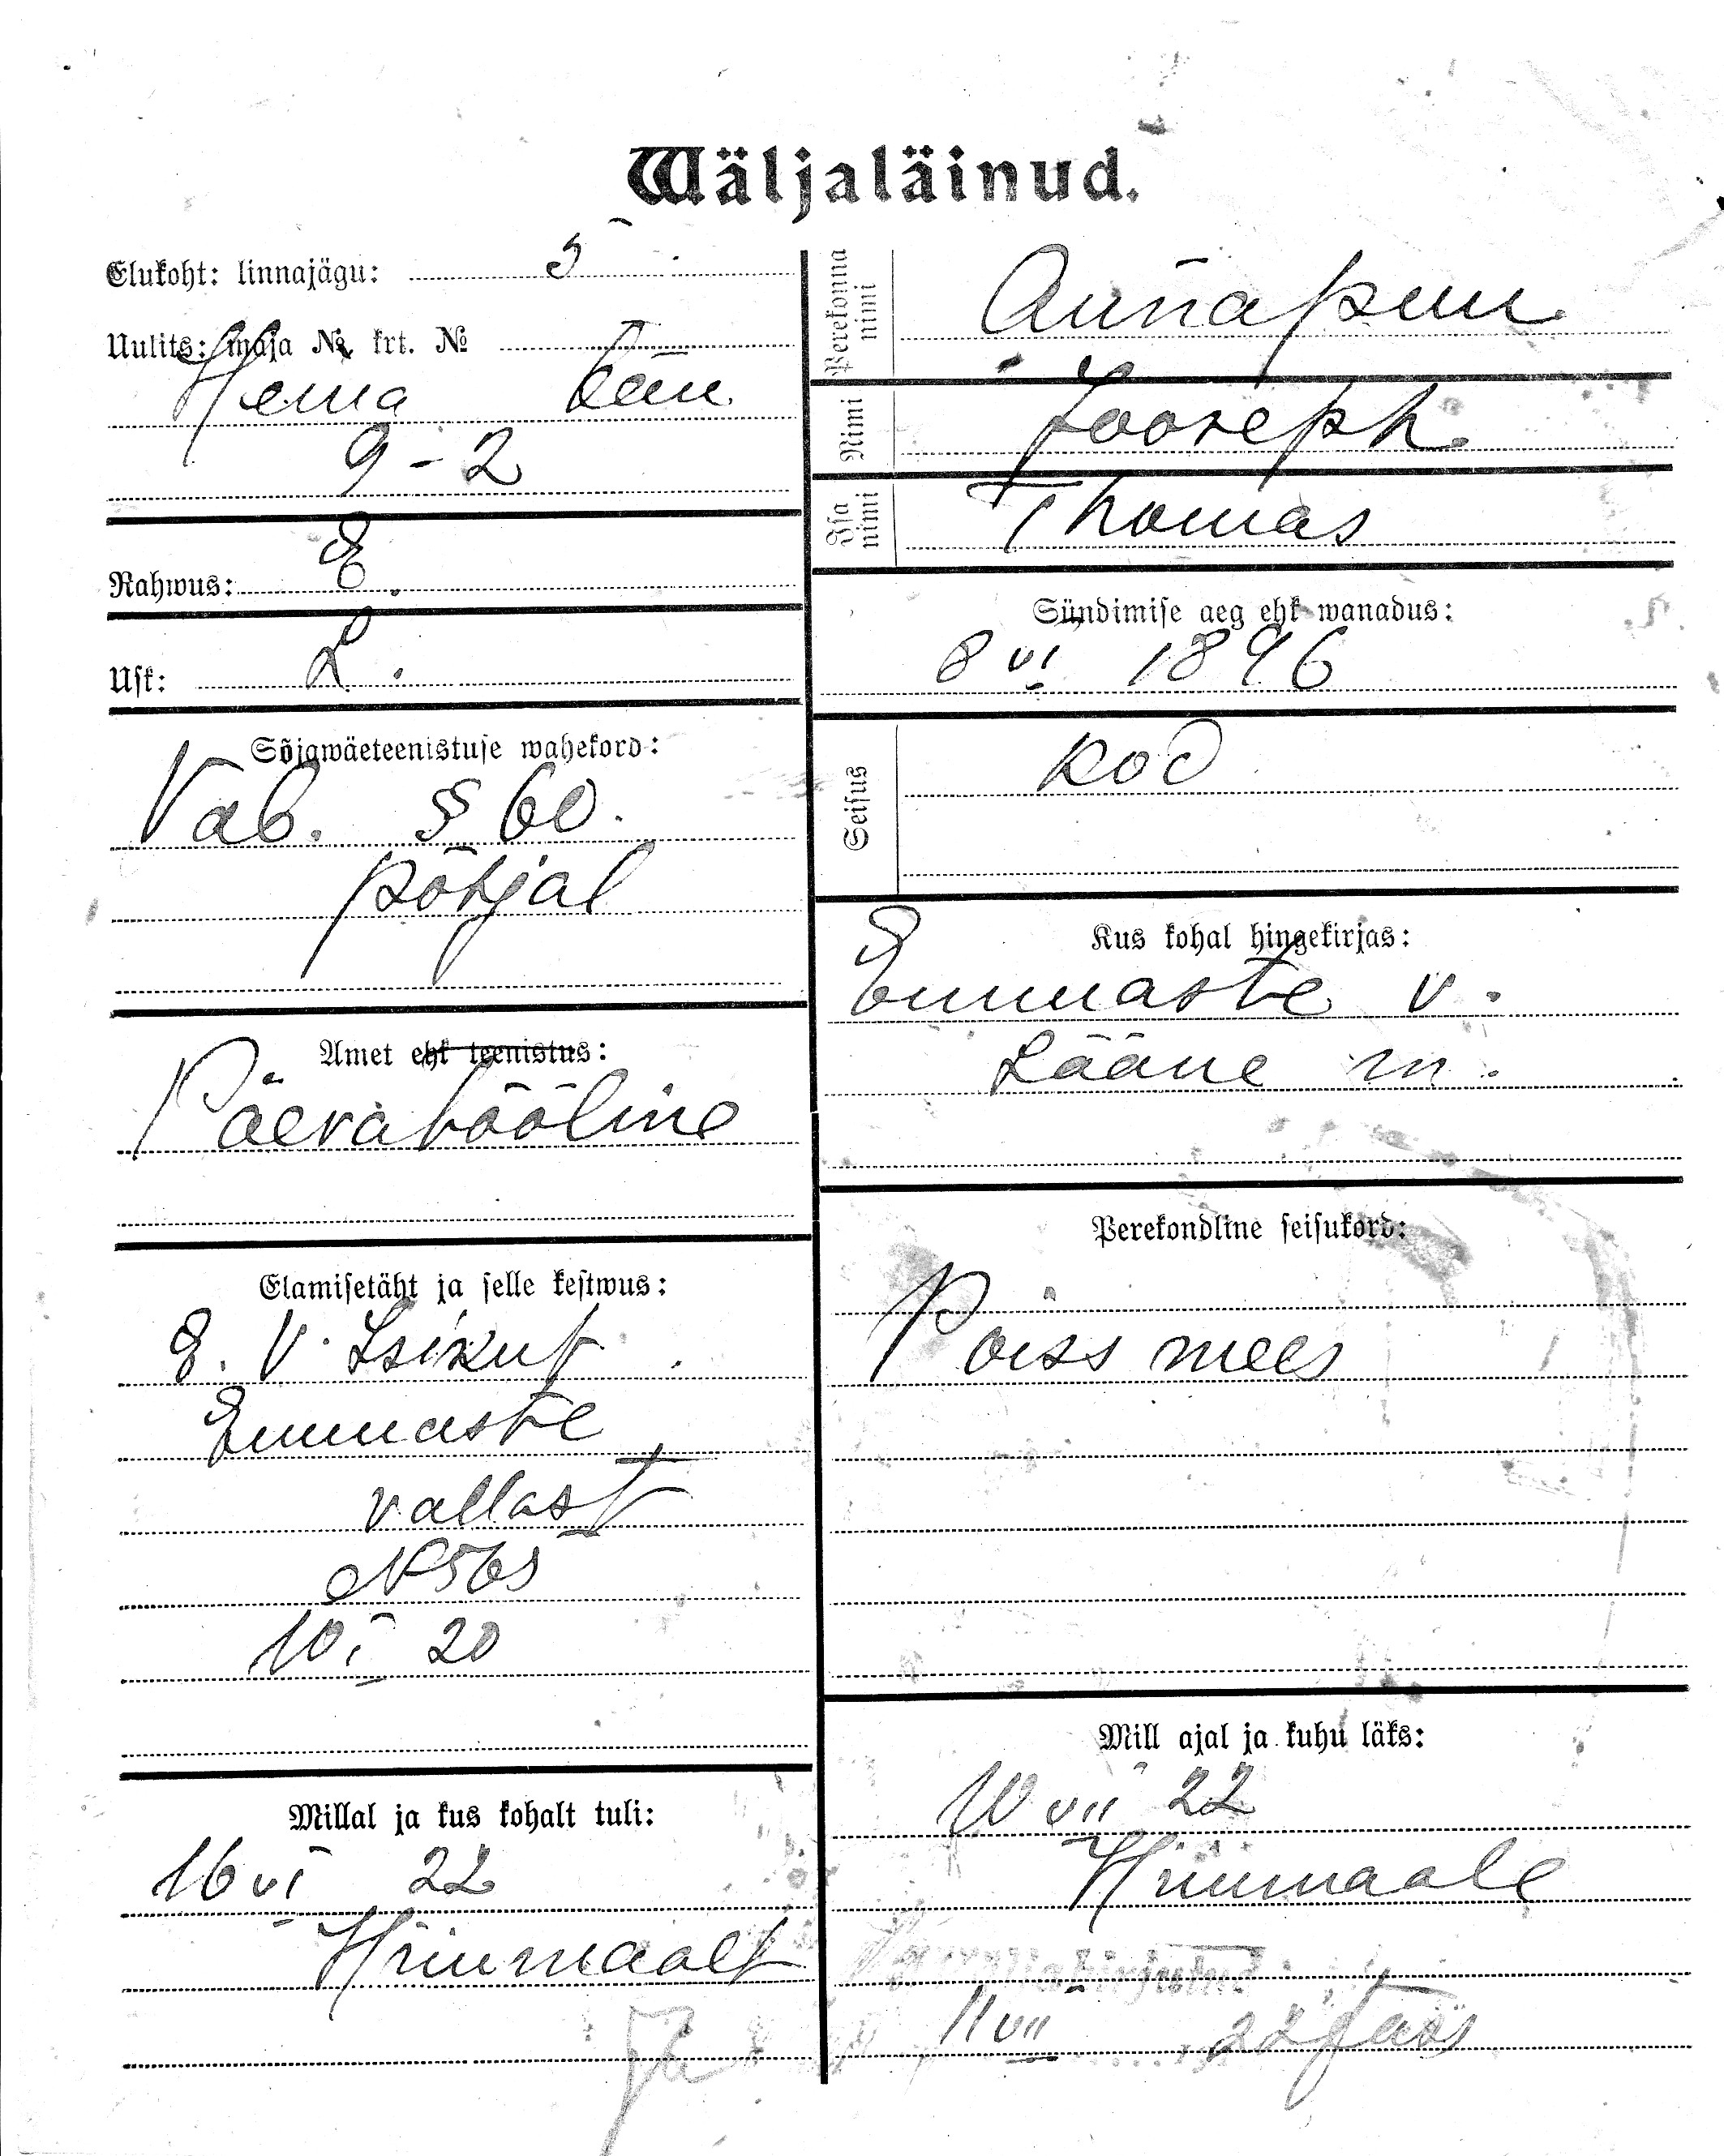 Wäljaläinud.
Elukoht: linnajägu: 5
Uulits: maja № krt. №
Herna tän
9-2
Rahwus: E.
Usk: L.
Sõjawäeteenistuse wahekord:
Vab. § 60.
põhjal
Amet ehk teenistus:
Päevatööline
Elamisetäht ja selle kestwus:
E. V. Isikut.
Emmaste
vallast
N 565
10 I 20
Millal ja kus kohalt tuli:
16 VI 22
Hiiumaalt
Perekonna nimi
Annapuu
Nimi
Jooseph.
Isa nimi
Thomas
Sündimise aeg ehk wanadus:
8 VI 1896
Seisus
kod
Kus kohal hingekirjas:
Emmaste v.
Lääne m.
Perekondline seisukord:
Poissmees
Mill ajal ja kuhu läks:
10 VII 22
Hiiumaale
11 VII 22